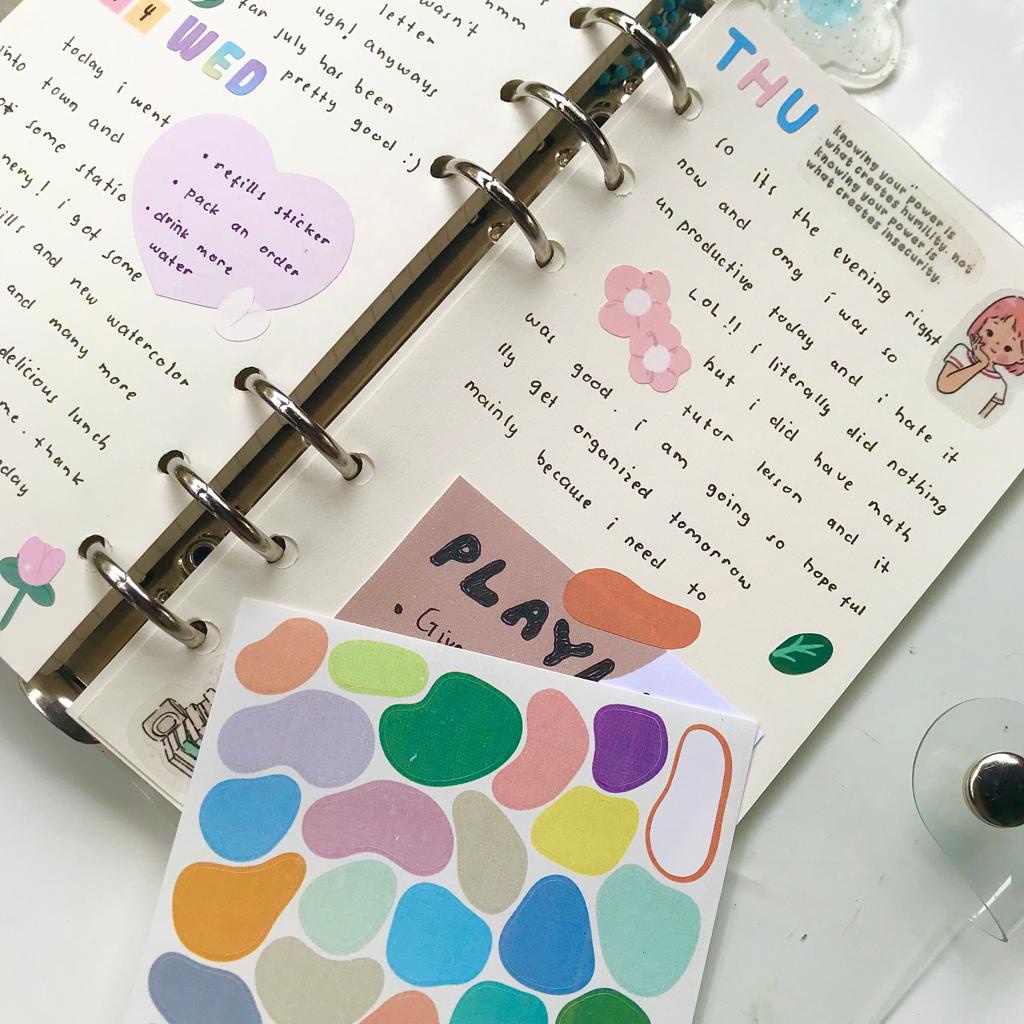 4 WED
today i went
into town and
some statio
nery! i got some
and new watercolor
and many more
delicious lunch
thank
today
hmm
wasn't
letter
ugh! anyways
far july has been
pretty good :)
• refills sticker
• pack an order
• drink more
water
THU
knowing your power is
what creates humility. not
knowing your power is
what creates insecurity.
so its the evening right
now and omg i was so
un productive today and i hate it
LOL!! i literally did nothing
but i did have math
tutor lesson and it
was good. i am going so hope ful
lly get organized tomorrow
mainly because i need to
PLAY